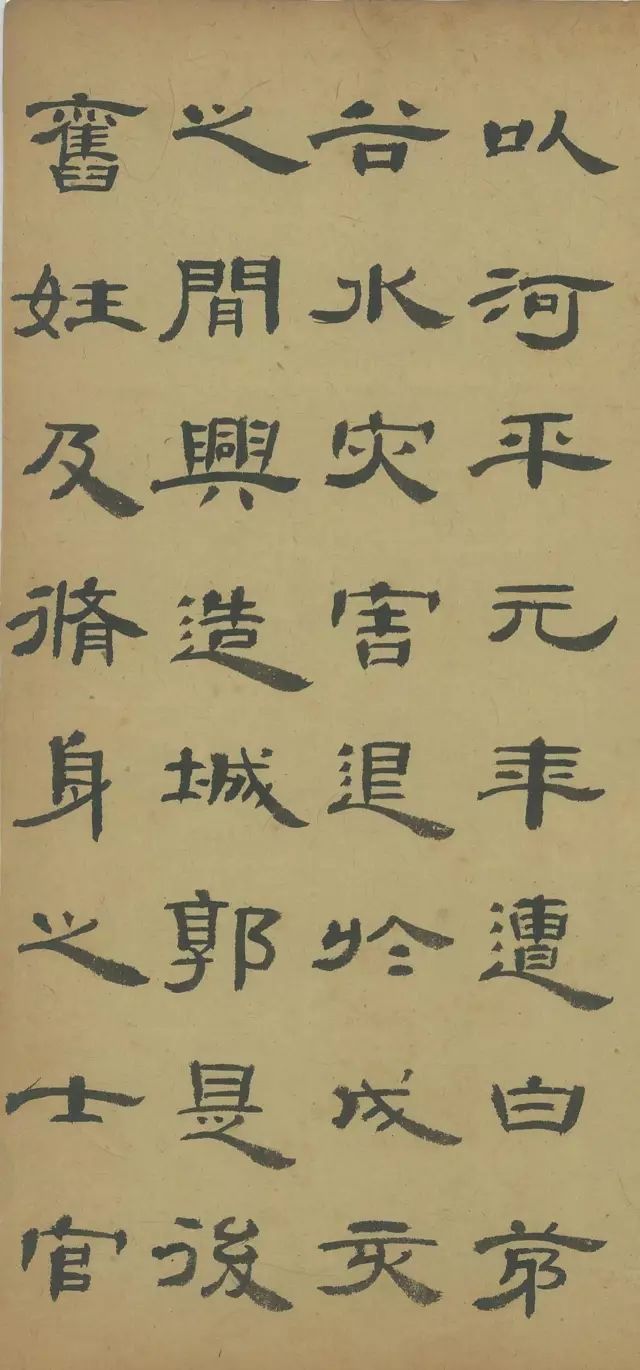 以河平元年遭白茅
谷水灾害退於戌亥
之間興造城郭是後
舊姓及脩身之士官